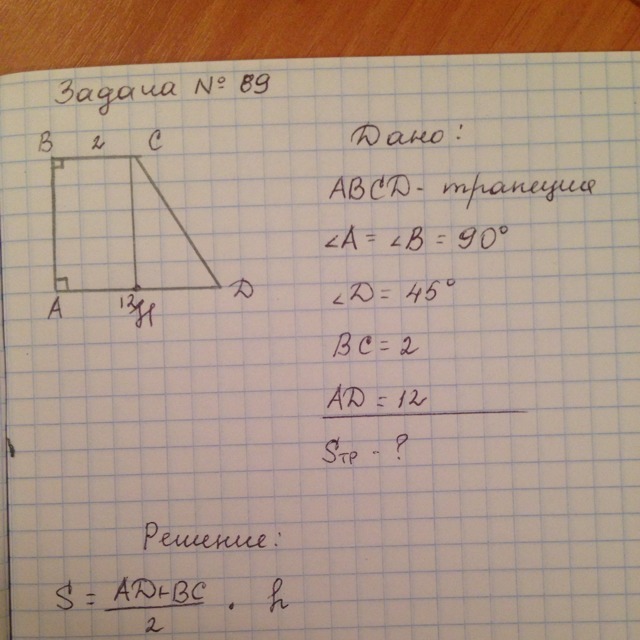 Задача № 89
B 2 C
A 12 H D
Дано:
ABCD - трапеция
∠A = ∠B = 90°
∠D = 45°
BC = 2
AD = 12
Sтр - ?
Решение:
S = AD+BC / 2 · h